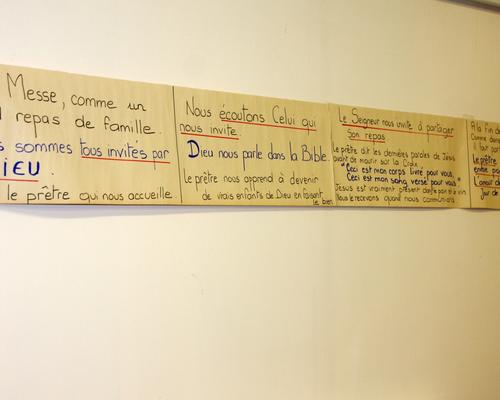 Messe, comme un
repas de famille.
sommes tous invités par
IEU.
le prêtre qui nous accueille.
Nous écoutons Celui qui
nous invite.
Dieu nous parle dans la Bible
le prêtre nous apprend à devenir
de vrais enfants de Dieu en faisant
le bien
Le Seigneur nous invite à partager
son repas
Le prêtre dit les dernières paroles de Jésus
avant de mourir sur la Croix
"Ceci est mon corps livré pour vous,
Ceci est mon sang versé pour vous"
Jésus est vraiment présent dans le pain et le vin
Nous le recevons quand nous communions
A la fin d
Comme
Le prêtre